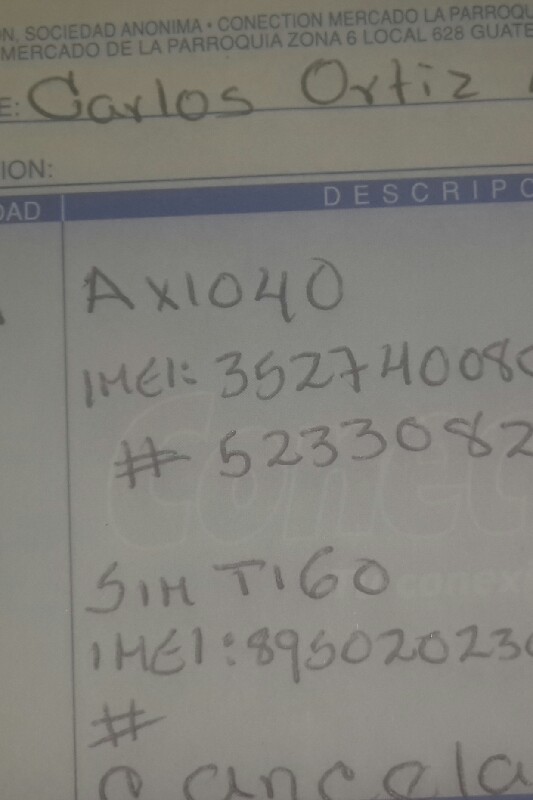 ON, SOCIEDAD ANONIMA • CONECTION MERCADO LA PARROQU
MERCADO DE LA PARROQUIA ZONA 6 LOCAL 628 GUATE
E: Carlos Ortiz
ION:
DAD DESCRIPC
AX1040
IMEI: 352774008
# 5233082
Conec
conexi
SIM TIGO
IMEI: 895020230
#
Cancela